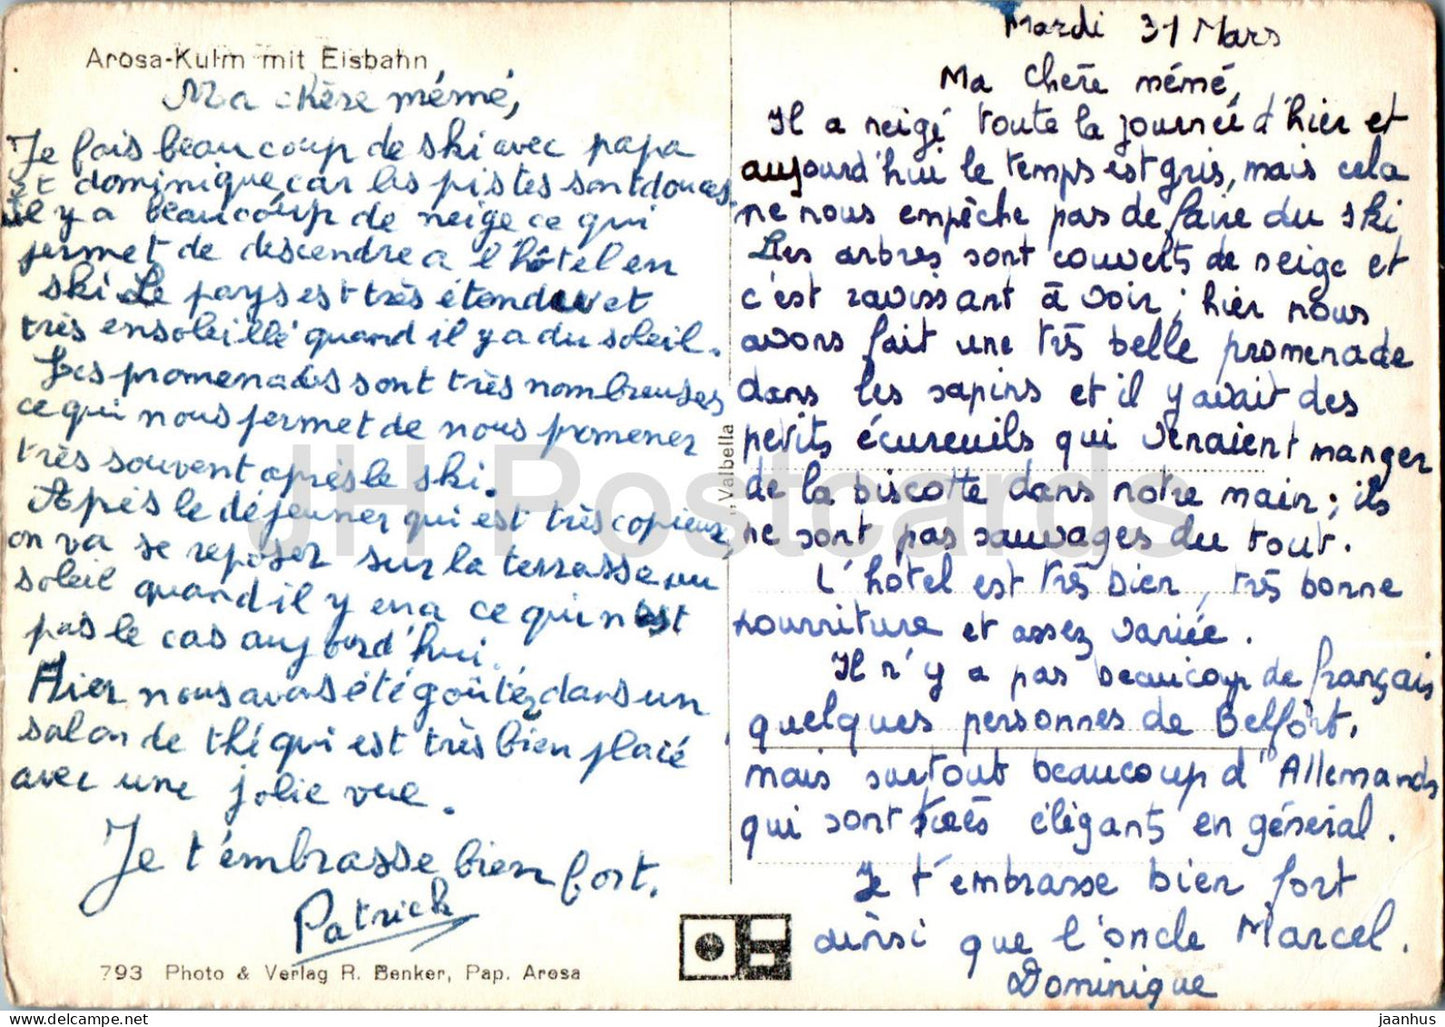 Arosa-Kulm mit Eisbahn
Ma chère mémé,
Je fais beaucoup de ski avec papa
et dominique, car les pistes sont douces.
il y a beaucoup de neige ce qui
permet de descendre a l'hôtel en
ski. Le pays est très étendu et
très ensoleillé quand il y a du soleil.
Les promenades sont très nombreuses
ce qui nous permet de nous promener
très souvent après le ski.
Après le déjeuner qui est très copieux,
on va se reposer sur la terrasse au
soleil quand il y en a ce qui n'est
pas le cas aujourd'hui.
Hier nous avons été goûtez dans un
salon de thé qui est très bien placé
avec une jolie vue.
Je t'embrasse bien fort.
Patrick
793 Photo & Verlag R. Benker, Pap. Arosa
Valbella
Mardi 31 Mars
Ma chère mémé,
Il a neigé toute la journée d'hier et
aujourd'hui le temps est gris, mais cela
ne nous empêche pas de faire du ski
Les arbres sont couverts de neige et
c'est ravissant à voir ; hier nous
avons fait une très belle promenade
dans les sapins et il y avait des
petits écureuils qui venaient manger
de la biscotte dans notre main ; ils
ne sont pas sauvages du tout.
L'hôtel est très bien, très bonne
nourriture et assez variée.
Il n'y a pas beaucoup de français
quelques personnes de Belfort,
mais surtout beaucoup d'Allemands
qui sont très élégants en général.
Je t'embrasse bien fort
ainsi que l'oncle Marcel.
Dominique
JH Postcards
www.delcampe.net
jaanhus